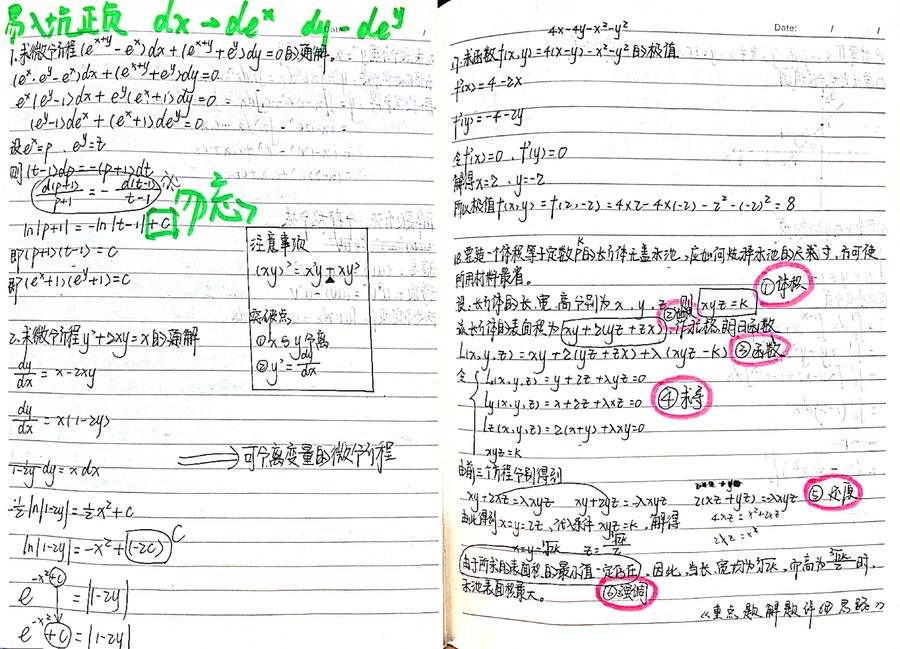 易入坑正负 dx→de^x dy→de^y
Date: /
1.求微分方程(e^{x+y}-e^x)dx+(e^{x+y}+e^y)dy=0的通解。
(e^x·e^y-e^x)dx+(e^{x+y}+e^y)dy=0
e^x(e^y-1)dx+e^y(e^x+1)dy=0
(e^y-1)de^x+(e^x+1)de^y=0
设e^x=p、e^y=t
则(t-1)dp=-(p+1)dt
d(p+1)/p+1=-d(t-1)/t-1
ln|p+1|=-ln|t-1|+C 勿忘
即(p+1)(t-1)=C
即(e^x+1)(e^y-1)=C
注意事项
(xy)'=x'y+xy'
突破点
①x与y分离
②y'=dy/dx
2.求微分方程y'+2xy=x的通解
dy/dx=x-2xy
dy/dx=x(1-2y)
1/1-2y dy=x dx ⟹可分离变量的微分方程
-½ln|1-2y|=½x²+C
ln|1-2y|=-x²+(-2C) C
e^{-x²+C}=|1-2y|
e^{-x²}+C=|1-2y|
4x-4y-x²-y²
Date: / /
17.求函数f(x,y)=4(x-y)-x²-y²的极值
f'(x)=4-2x
f'(y)=-4-2y
令f'(x)=0、f'(y)=0
解得x=2、y=-2
所以极值f(x,y)=f(2,-2)=4×2-4×(-2)-2²-(-2)²=8
18.要造一个体积等于定数k的长方体无盖水池,应如何选择水池的尺寸,方可使
所用材料最省。
设长方体的长、宽、高分别为x、y、z 则xyz=k ①体积
该长方体的表面积为xy+2(yz+zx),作拉格朗日函数
L(x,y,z)=xy+2(yz+zx)+λ(xyz-k) ③函数
令 Lx(x,y,z)=y+2z+λyz=0
Ly(x,y,z)=x+2z+λxz=0 ④求导
Lz(x,y,z)=2(x+y)+λxy=0
xyz=k
由前三个方程分别得到
xy+2xz=-λxyz xy+2yz=-λxyz 2(xz+yz)=-λxyz ⑤还原
由此得到x=y=2z,代入条件xyz=k,解得
x=y=∛2k z=∛2k/2
由于所求的表面积的最小值一定存在,因此,当长、宽均为∛2k,而高为∛2k/2时,
水池表面积最大。 ⑥强调
《重点题解题详细思路》